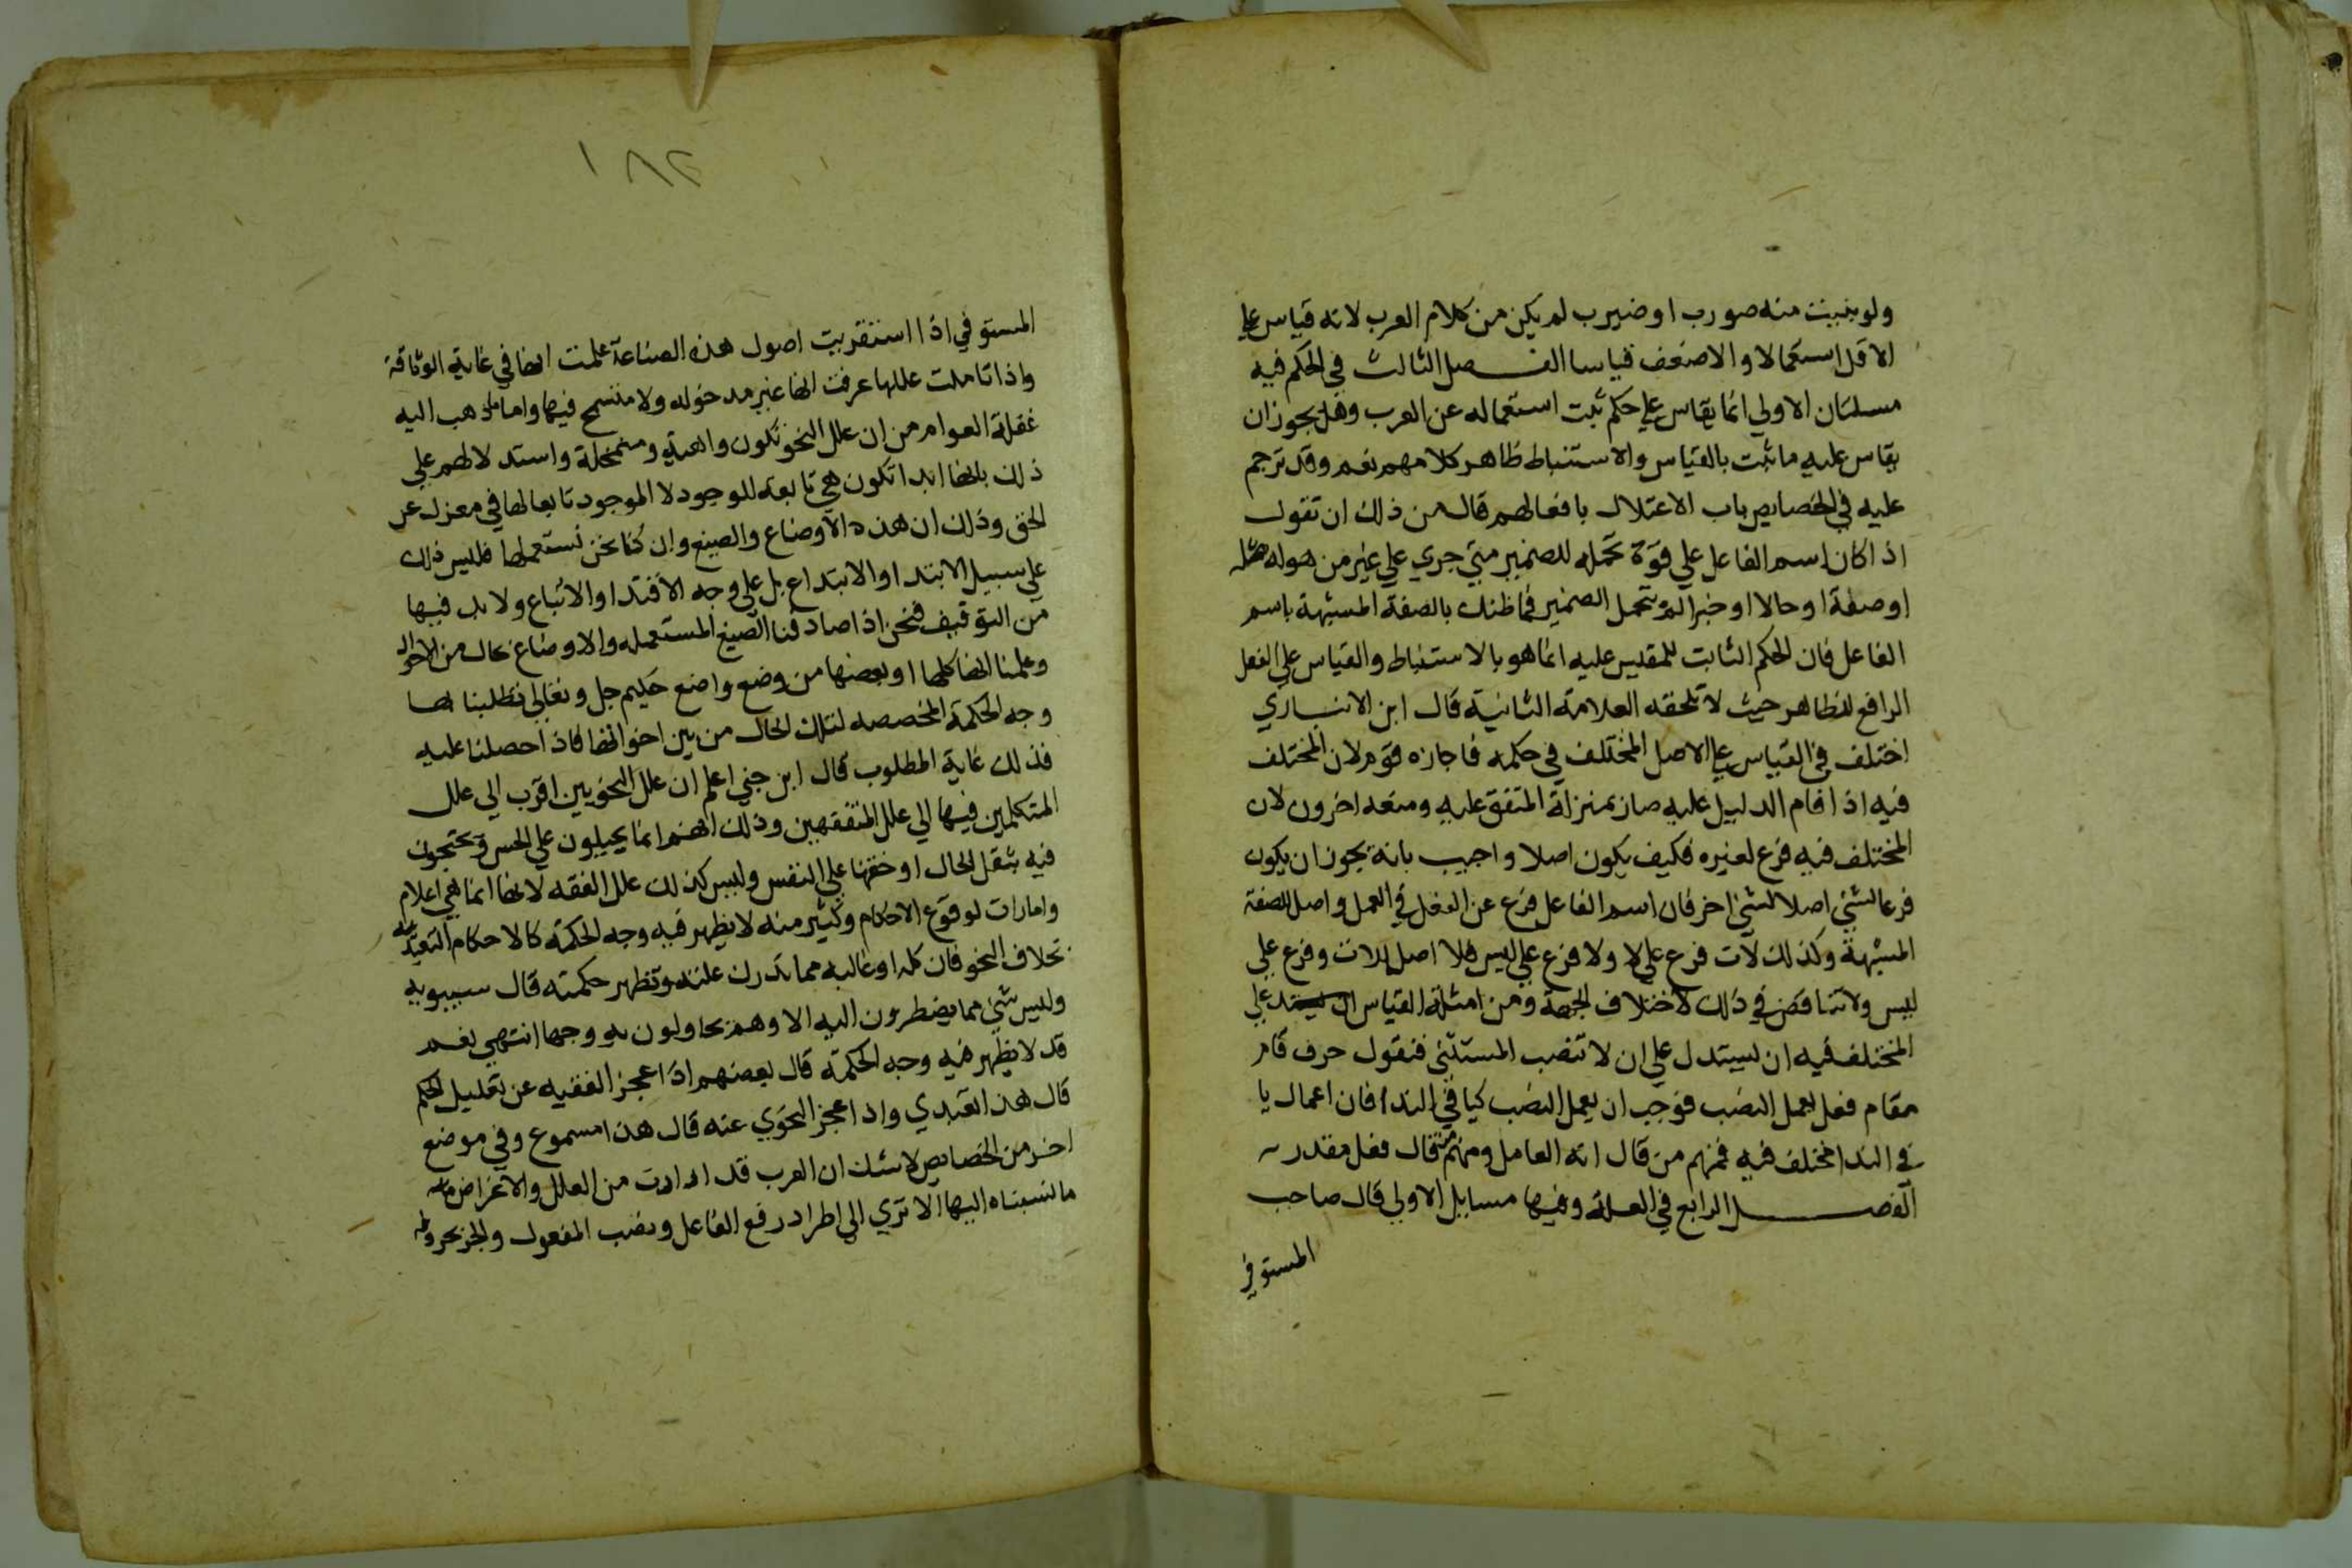 ولو بنيت منه صورب او ضيرب لم يكن من كلام العرب لانه قياس علي
الاقل استعمالا والاضعف قياسا الفصل الثالث في الحكم فيه
مسلتان الاولي انما يقاس علي حكم ثبت استعماله عن العرب وهل يجوز ان
يقاس عليه ما ثبت بالقياس والاستنباط ظاهر كلامهم نعم وقد ترجم
عليه في الخصايص باب الاعتلال بافعالهم قال من ذلك ان تقول
اذا كان اسم الفاعل علي قوة تحمله للضمير متي جري علي غير من هوله صله
او صفة او حالا او خبرا لم يتحمل الضمير فما ظنك بالصفة المشبهة باسم
الفاعل فان الحكم الثابت للمقيس عليه انما هو بالاستنباط والقياس علي الفعل
الرافع للظاهر حيث لا تلحقه العلامة الثانية قال ابن الانباري
اختلف في القياس علي الاصل المختلف في حكمه فاجازه قوم لان المختلف
فيه اذا قام الدليل عليه صار بمنزلة المتفق عليه ومنعه اخرون لان
المختلف فيه فرع لغيره فكيف يكون اصلا واجيب بانه يجوز ان يكون
فرعا لشئ اصلا لشئ اخر فان اسم الفاعل فرع عن الفعل في العمل واصل للصفة
المشبهة وكذلك لات فرع علي لا ولا فرع علي ليس فلا اصل للات وفرع علي
ليس ولا تناقض في ذلك لاختلاف الجهة ومن امثلة القياس علي
المختلف فيه ان يستدل علي ان لا تنصب المستثني فنقول حرف قام
مقام فعل يعمل النصب فوجب ان يعمل النصب كيا في الندا فان اعمال يا
في الندا مختلف فيه فمنهم من قال انه العامل ومنهم من قال فعل مقدر
الفصل الرابع في العلة وفيها مسايل الاولي قال صاحب
المستوفي
١٨٢
المستوفي اذا استقريت اصول هذه الصناعة علمت انها في غاية الوثاقة
واذا تاملت عللها عرفت انها غير مدخوله ولا متسمح فيها واما ما ذهب اليه
غفلة العوام من ان علل النحو تكون واهية ومتمحلة واستدلالهم علي
ذلك بانها ابدا تكون هي تابعة للوجود لا الموجود تابعا لها في معزل عن
الحق وذلك ان هذه الاوضاع والصيغ وان كنا نحن نستعملها فليس ذلك
علي سبيل الابتدا والابتداع بل علي وجه الاقتدا والاتباع ولا بد فيها
من التوقيف فنحن اذا صادفنا الصيغ المستعمله والاوضاع بحال من الاحوال
وعلمنا انها كلها او بعضها من وضع واضع حكيم جل وتعالي تطلبنا لها
وجه الحكمة المخصصه لتلك الحال من بين اخواتها فاذا حصلنا عليه
فذلك غاية المطلوب قال ابن جني اعلم ان علل النحويين اقرب الي علل
المتكلمين فيها الي علل المتفقهين وذلك انهم انما يحيلون علي الحس ويحتجون
فيه بثقل الحال او خفتها علي النفس وليس كذلك علل الفقه لانها انما هي اعلام
وامارات لوقوع الاحكام وكثير منه لا يظهر فيه وجه الحكمة كالاحكام التعبديه
بخلاف النحو فان كله او غالبه مما تدرك علته وتظهر حكمته قال سيبويه
وليس شئ مما يضطرون اليه الا وهم يحاولون به وجها انتهي نعم
قد لا يظهر فيه وجه الحكمة قال بعضهم اذا عجز الفقيه عن تعليل الحكم
قال هذا تعبدي واذا عجز النحوي عنه قال هذا مسموع وفي موضع
اخر من الخصايص لا شك ان العرب قد ارادت من العلل والاغراض
ما نسبناه اليها الا تري الي اطراد رفع الفاعل ونصب المفعول والجر بحروفه